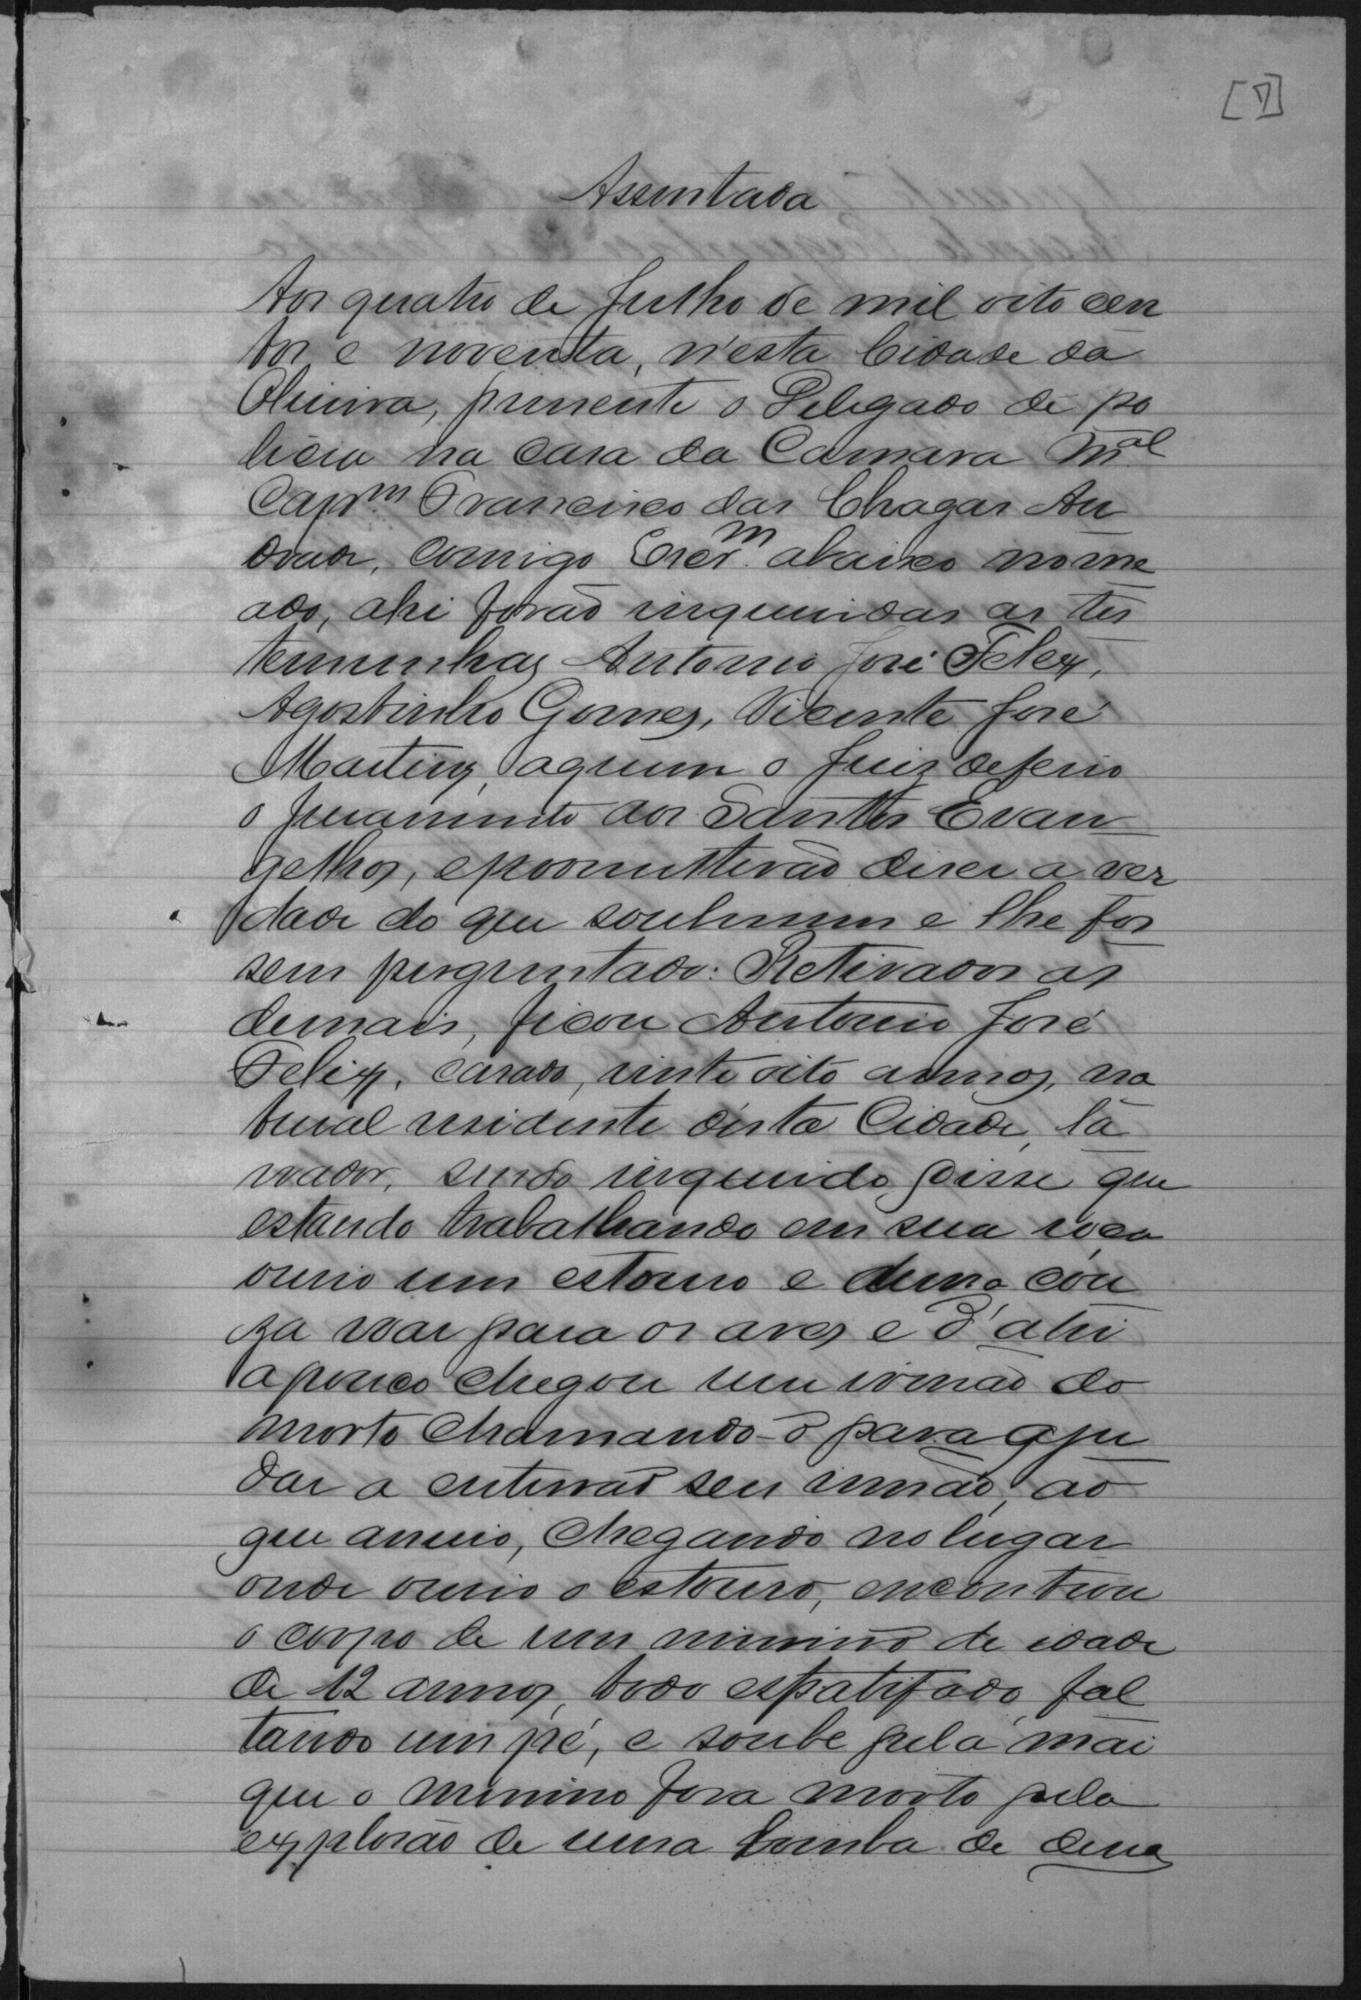 [7]
Assentada
Aos quatro de Julho de mil oito cen
tos e noventa, n'esta Cidade da
Oliveira, presente o Delegado de po
licia na casa da Camara M.al
Cap.m Francisco das Chagas An
drade, comigo Escr.m abaixo nome
ado, ahi forão inqueridas as tes
temunhas Antonio José Felex,
Agostinho Gomes, Vicente José
Martins, aquem o Juiz deferio
o juramento dos Santos Evan
gelhos, e promitterão diser a ver
dade do que soubessem e lhe fos
sem perguntado: Retirados as
demais, ficou Antonio José
Felix, casado, vinte oito annos, na
tural residente desta Cidade, la
vrador, sendo inquerido, disse que
estando trabalhando em sua roça
ouvio um estouro e uma cou
za voar para os ares e d'ahi
a pouco chegou um irmão do
morto chamando-o para aju
dar a enterrar seu irmão, ao
que anuio, chegando no lugar
onde ouvio o estouro, encontrou
o corpo de um minino de idade
de 12 annos, todo espatifado, fal
tando um pé, e soube pela mãi
que o minino fora morto pela
explosão de uma bomba de dina